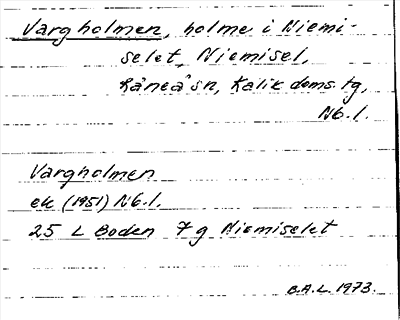 Vargholmen, holme i Niemi-
selet, Niemisel,
Råneå sn, Kalix doms. tg,
Nb. l.
Vargholmen
ek (1951) Nb. l.
25 L Boden 7 g Niemiselet
B.A.L. 1973.